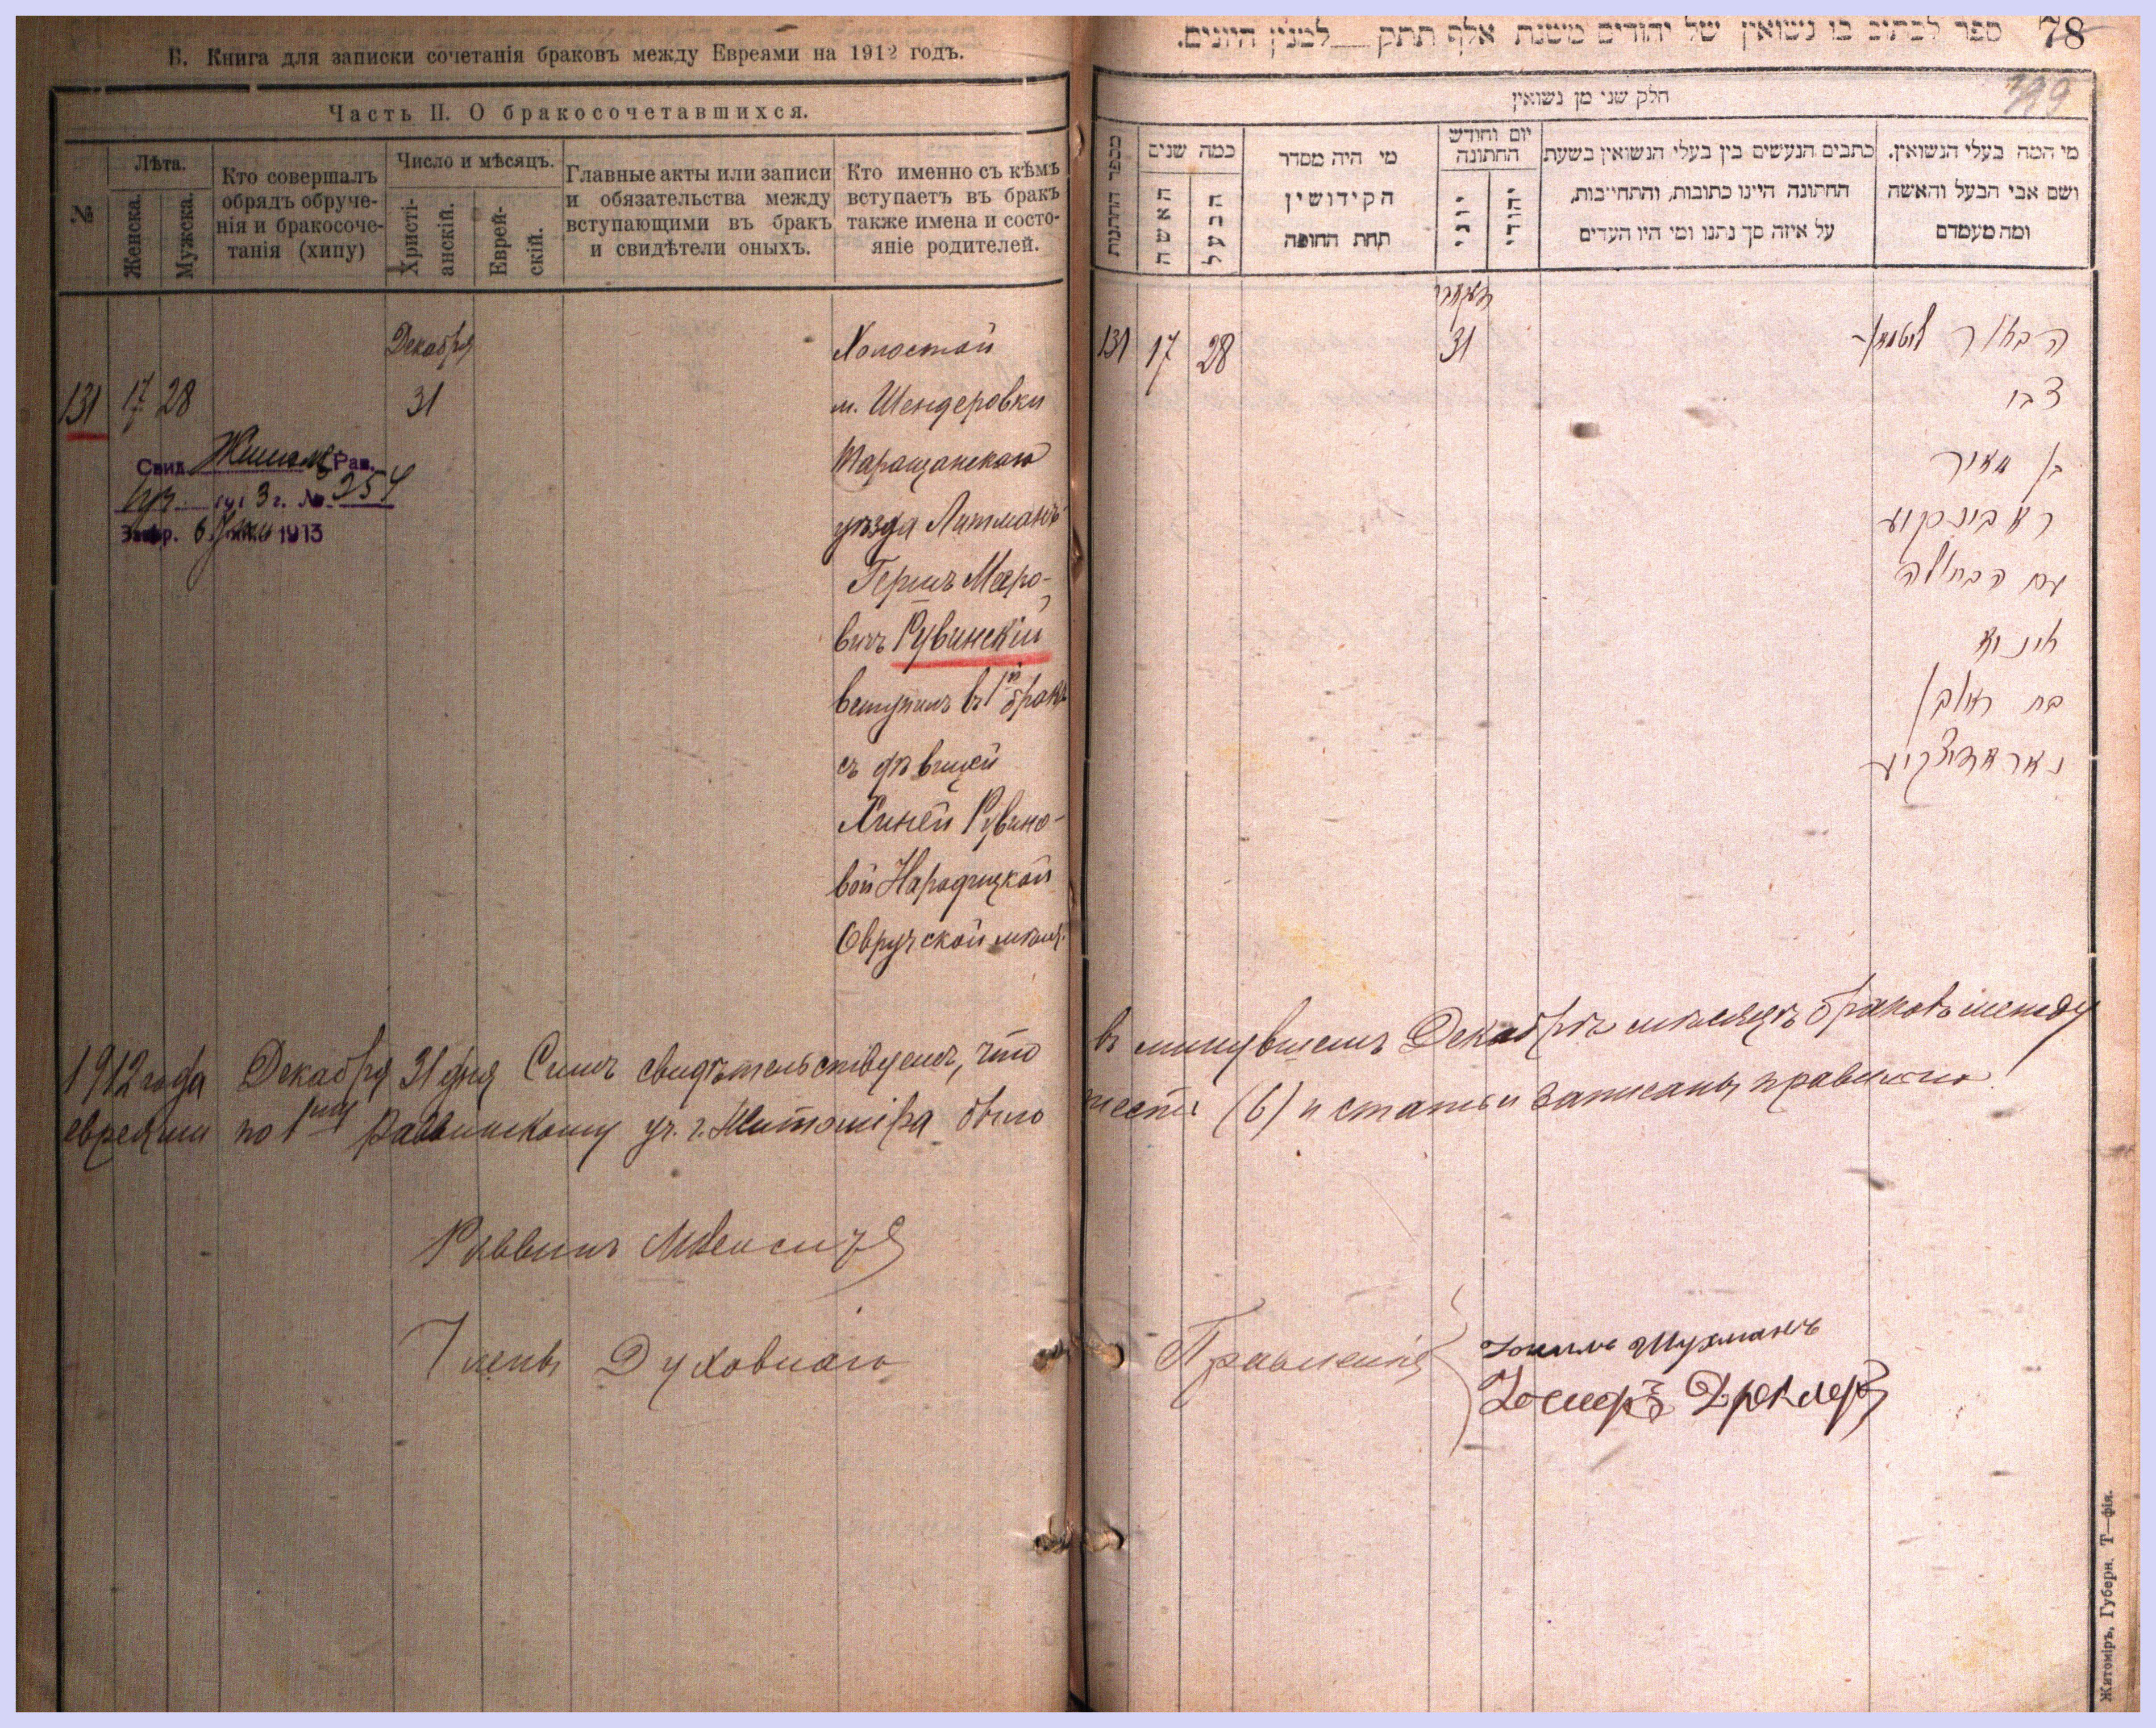 Б. Книга для записки сочетанія браковъ между Евреями на 1912 годъ.
Часть II. О бракосочетавшихся.
№
Лѣта.
Женска.
Мужска.
Кто совершалъ
обрядъ обруче-
нія и бракосоче-
танія (хипу)
Число и мѣсяцъ.
Христі-
анскій.
Еврей-
скій.
Главные акты или записи
и обязательства между
вступающими въ бракъ
и свидѣтели оныхъ.
Кто именно съ кѣмъ
вступаетъ въ бракъ
также имена и состо-
яніе родителей.
131
17
28
Декабря
31
Холостой
м. Шендеровки
Таращанскаго
уѣзда Литманъ
Гершъ Меро-
вичъ Рувинскій
вступилъ въ 1й бракъ
съ дѣвицей
Хиней Рувино-
вой Народицкой
Овручской
Свид. Рав.
191 3 г. № 254
6 1913
1912 года Декабря 31 дня Симъ свидѣтельствуемъ, что
евреями по 1му Раввинскому уч. г. Житомира было
Раввинъ
Члены Духовнаго
ספר לכתוב בו נשואין של יהודים משנת אלף תתק למנין היונים.
78
חלק שני מן נשואין
מספר החתנות
כמה שנים
האשה
הבעל
מי היה מסדר
הקידושין
תחת החופה
יום וחודש
החתונה
יוני
יהודי
כתבים הנעשים בין בעלי הנשואין בשעת
החתונה היינו כתובות, והתחייבות,
על איזה סך נתנו ומי היו העדים
מי המה בעלי הנשואין.
ושם אבי הבעל והאשה
ומה מעמדם
131
17
28
דעקאברי
31
הבחור ליטמאן
צבי
בן מאיר
ראבינסקי
עם הבתולה
חינ יא
בת ראובן
נאראדיצקי
въ минувшемъ Декабрѣ мѣсяцѣ браковъ между
шесть (6) и статьи записаны правильно.
Правленія
Іосифъ Дрекслеръ
Житоміръ, Губерн. Т—фія.